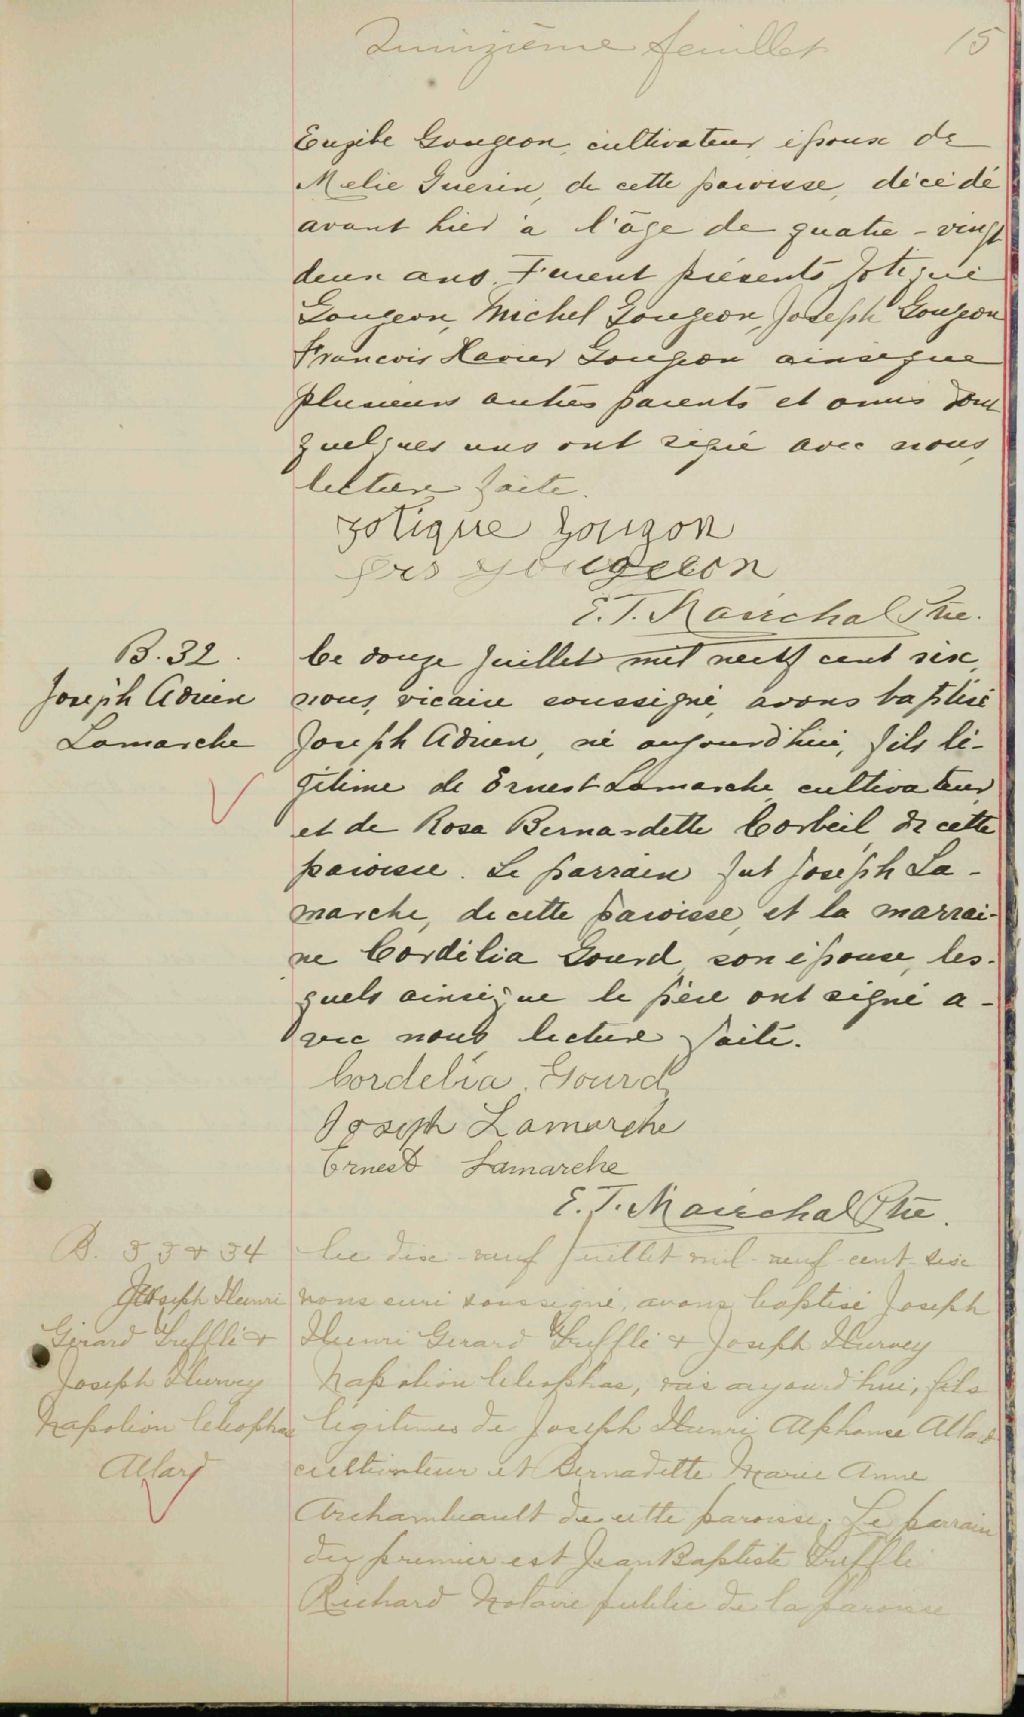 Quinzième feuillet 15
Euzèbe Gougeon, cultivateur, époux de
Mélie Guerin, de cette paroisse, décédé
avant hier à l'âge de quatre-vingt
deux ans. Furent présents Zotique
Gougeon, Michel Gougeon, Joseph Gougeon
Francois Xavier Gougeon ainsique
plusieurs autres parents et amis dont
quelques uns ont signé avec nous,
lecture faite.
Zotique Gougon
Frs Gougeon
E. T. Maréchal Ptre.
B. 32.
Joseph Adrien
Lamarche
Le douze Juillet mil neuf cent six,
nous, vicaire soussigné, avons baptisé
Joseph Adrien, né aujourd'hui, fils lé-
gitime de Ernest Lamarche, cultivateur,
et de Rosa Bernadette Corbeil, de cette
paroisse. Le parrain fut Joseph La-
marche, de cette paroisse, et la marrai-
ne Cordélia Gourd, son épouse, les-
quels ainsique le père ont signé a-
vec nous lecture faite.
Cordelia Gourd
Joseph Lamarche
Ernest Lamarche
E. T. Maréchal Ptre.
B. 33 & 34
Joseph Henri
Gérard Truffli &
Joseph Hurvey
Napoléon Cléophas
Allard
Le dix-neuf Juillet mil-neuf-cent-six
nous curé soussigné, avons baptisé Joseph
Henri Gerard Truffli & Joseph Hurvey
Napoléon Cléophas, nés aujourd'hui, fils
légitimes de Joseph Henri Alphonse Allard
cultivateur et Bernadette Marie Anne
Archambeault de cette paroisse. Le parrain
du premier est Jean Baptiste Truffli
Richard Notaire public de la paroisse